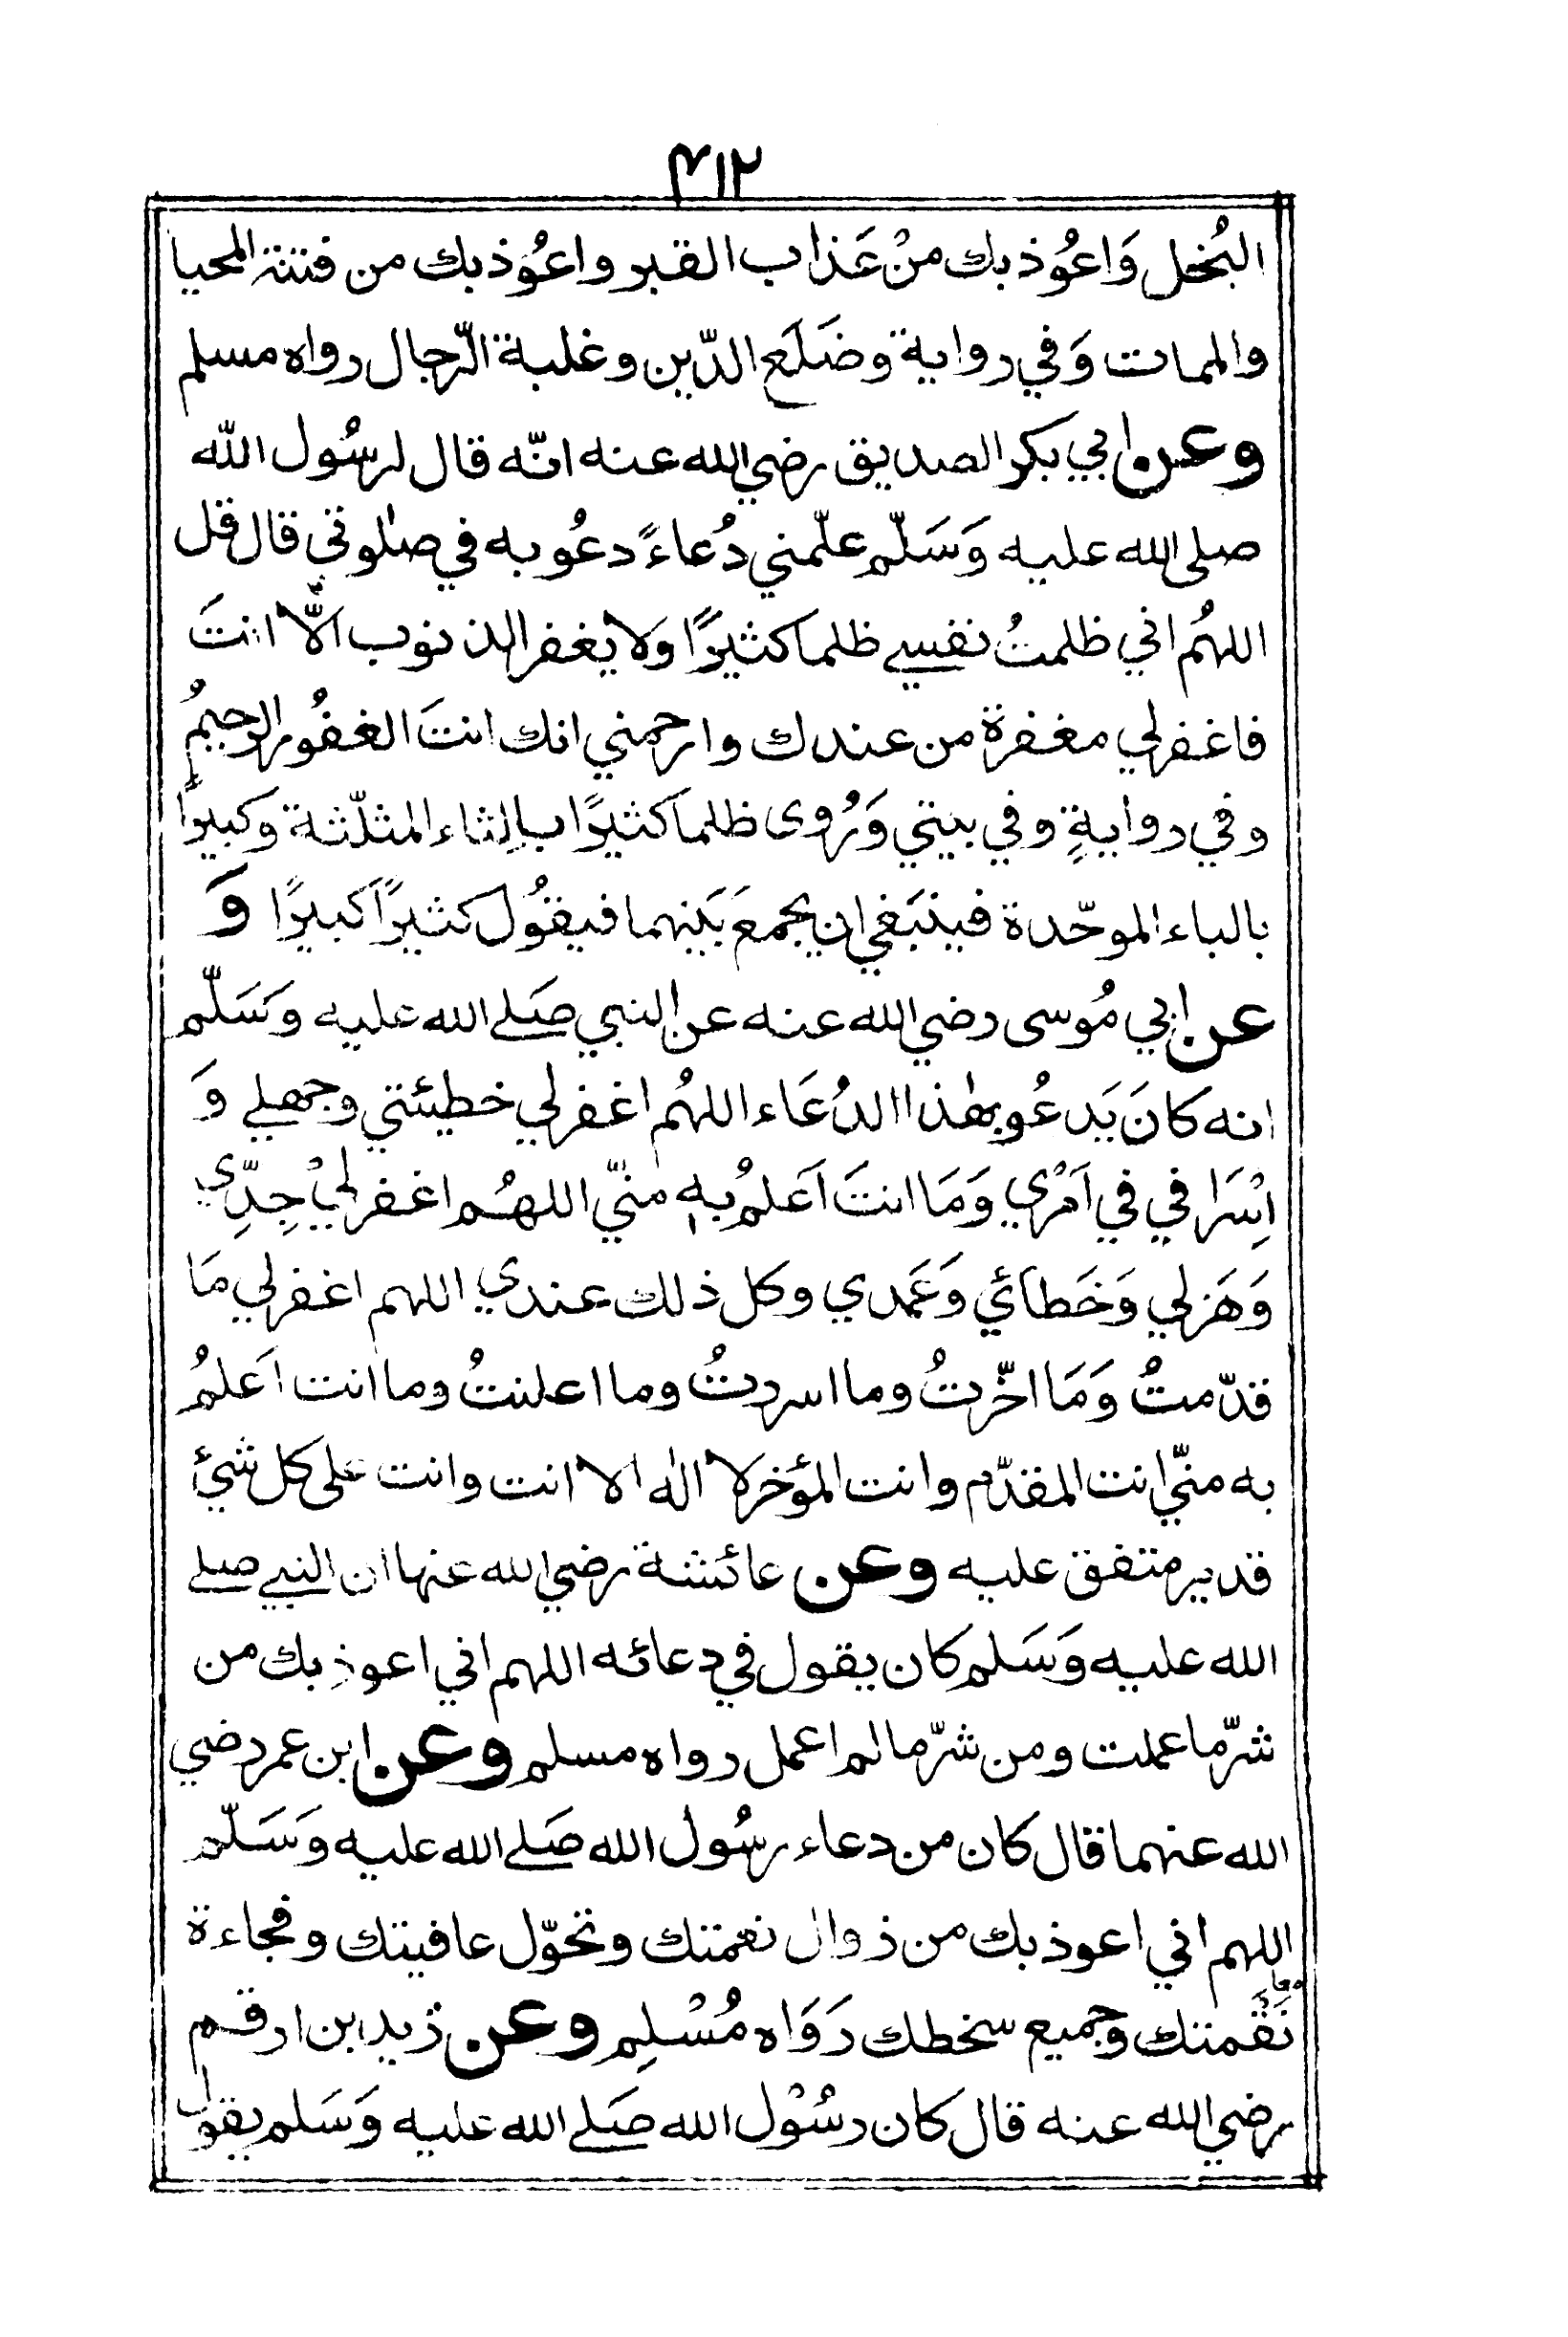 ٤١٢
البُخل وَاعُوذ بك منْ عَذاب القبر واعُوْذ بك من فتنة المحيا
والممات وَفي رواية وضَلَع الدّين وغلبة الرّجال رواه مسلم
وعن ابي بكر الصديق رضي الله عنه انّه قال لرسُول اللّه
صلى الله عليه وَسَلّم علّمني دُعاءً دعُو به في صلٰوتي قال قل
اللهُم اني ظلمتُ نفسي ظلما كثيرًا ولا يغفر الذنوب الّا انتَ
فاغفرلي مغفرة من عندك وارحمني انك انتَ الغفُور الرحيمُ
وفي روايةٍ وفي بيتي وَرُوى ظلما كثيرًا بالِثاء المثلّثة وكبيرًا
بالباء الموحّدة فينبَغي ان يجمعَ بَينهما فيقوُل كثيرًا كبيرًا وَ
عن ابي مُوسى رضي الله عنه عن النبي صَلى الله عليه وَسَلّم
انه كانَ يَدعُو بهٰذا االدُعَاء اللهُم اغفرلي خطيئتي وجهلي وَ
اِسْرَافي في اَمْري وَمَا انتَ اَعَلمُ بهٖ منّي اللهُم اغفرليْ جِدِّي
وَهَزلي وَخَطَائي وَعَمدي وكل ذلك عندي اللهم اغفرلي مَا
قدّمتُ وَمَا اخّرتُ وما اسررتُ وما اعلنتُ وما انت اَعلمُ
به منّي انت المقدّم وانت المؤخر لا الٰه الا انت وانت على كل شئ
قدير متفق عليه وعن عائشة رضي الله عنها ان النبي صلى
الله عليه وَسَلم كان يقول في دعائه اللهم اني اعوذ بك من
شرّ ما عملت ومن شرّ مالم اعمل رواه مسلم وعن ابن عمر رضي
الله عنهما قال كان من دعاء رسُول الله صَلى الله عليه وَسَلّم
اللهم اني اعوذ بك من زوال نعمتك وتحوّل عافيتك وفجاءة
نَقمتك وجميع سخطك رَوَاه مُسْلِم وعن زيد ابن ارقم
رضي الله عنه قال كان رسُوْل الله صَلى الله عليه وَسَلم يقول